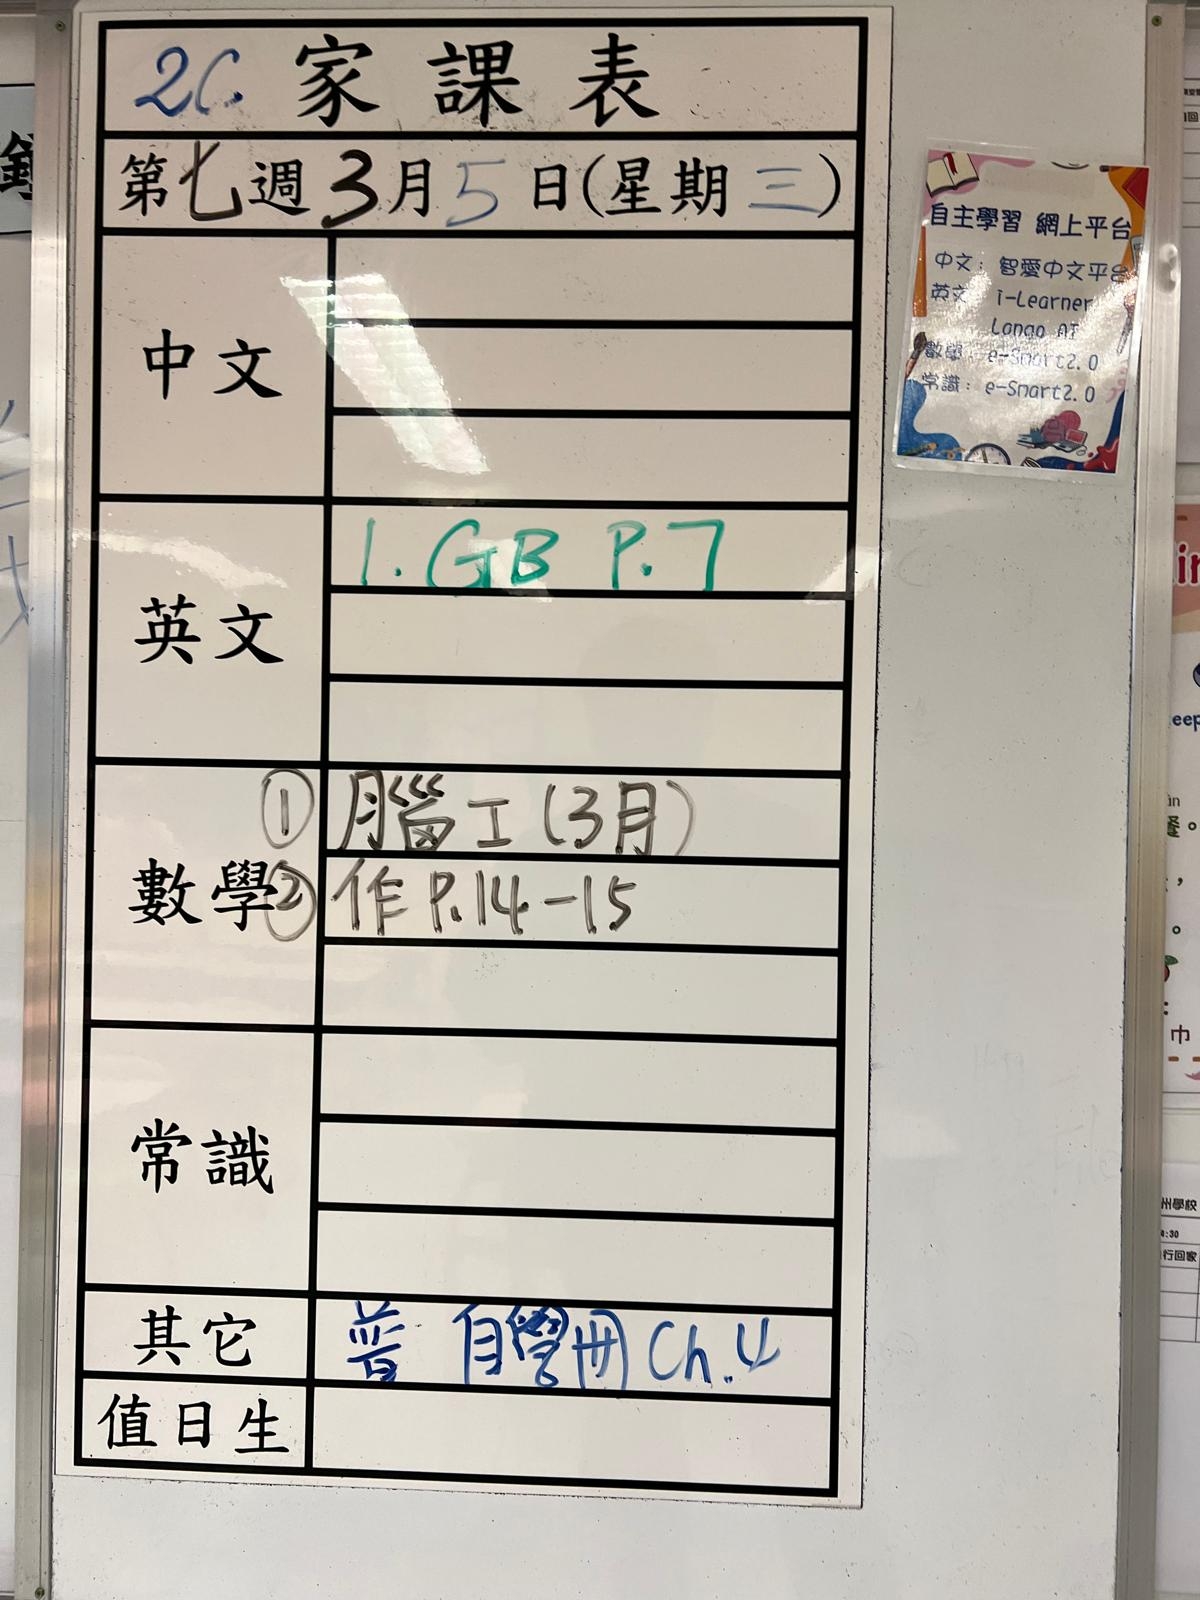 2C. 家課表
第七週3月5日(星期三)
中文
英文
1. GB P.7
數學
① 腦工(3月)
② 作 P.14-15
常識
其它
普 自學冊 Ch.4
值日生
自主學習 網上平台
中文: 智愛中文平台
英文: i-Learner
數學: e-Smart2.0
常識: e-Smart2.0
州學校
行回家